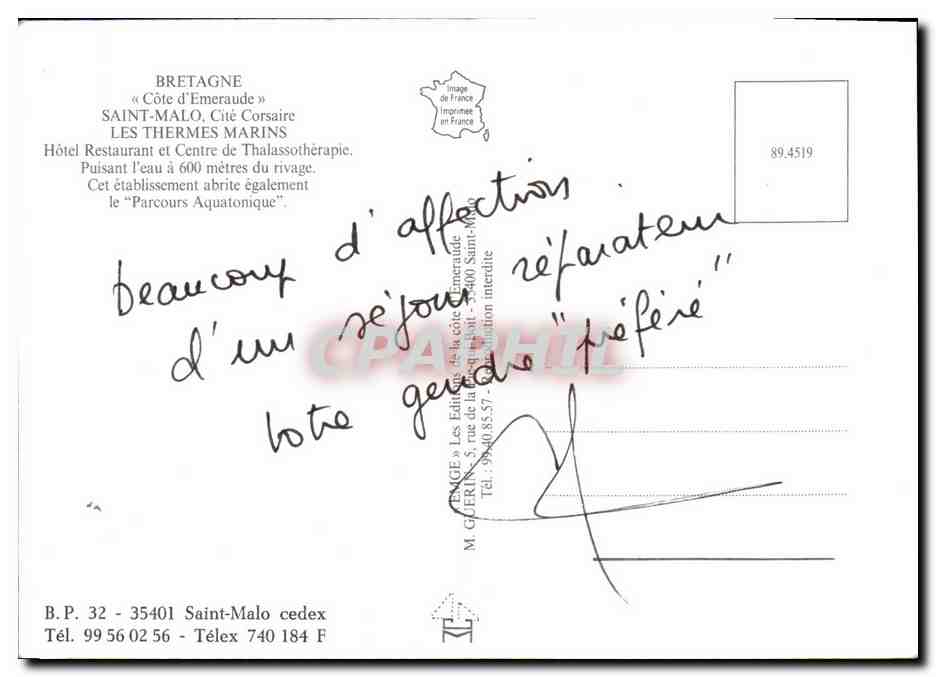 BRETAGNE
« Côte d'Emeraude »
SAINT-MALO, Cité Corsaire
LES THERMES MARINS
Hôtel Restaurant et Centre de Thalassothérapie.
Puisant l'eau à 600 mètres du rivage.
Cet établissement abrite également
le "Parcours Aquatonique".
Image
de France
Imprimée
en France
89.4519
beaucoup d'affections.
d'un séjour réparateur
votre gendre "préféré"
CPARPHIL
"EMGE » Les Editions de la côte d'Emeraude
M. GUERIN - 5, rue de la - 35400 Saint-Malo
Tél. : 99.40.85.57 - Reproduction interdite
B.P. 32 - 35401 Saint-Malo cedex
Tél. 99 56 02 56 - Télex 740 184 F